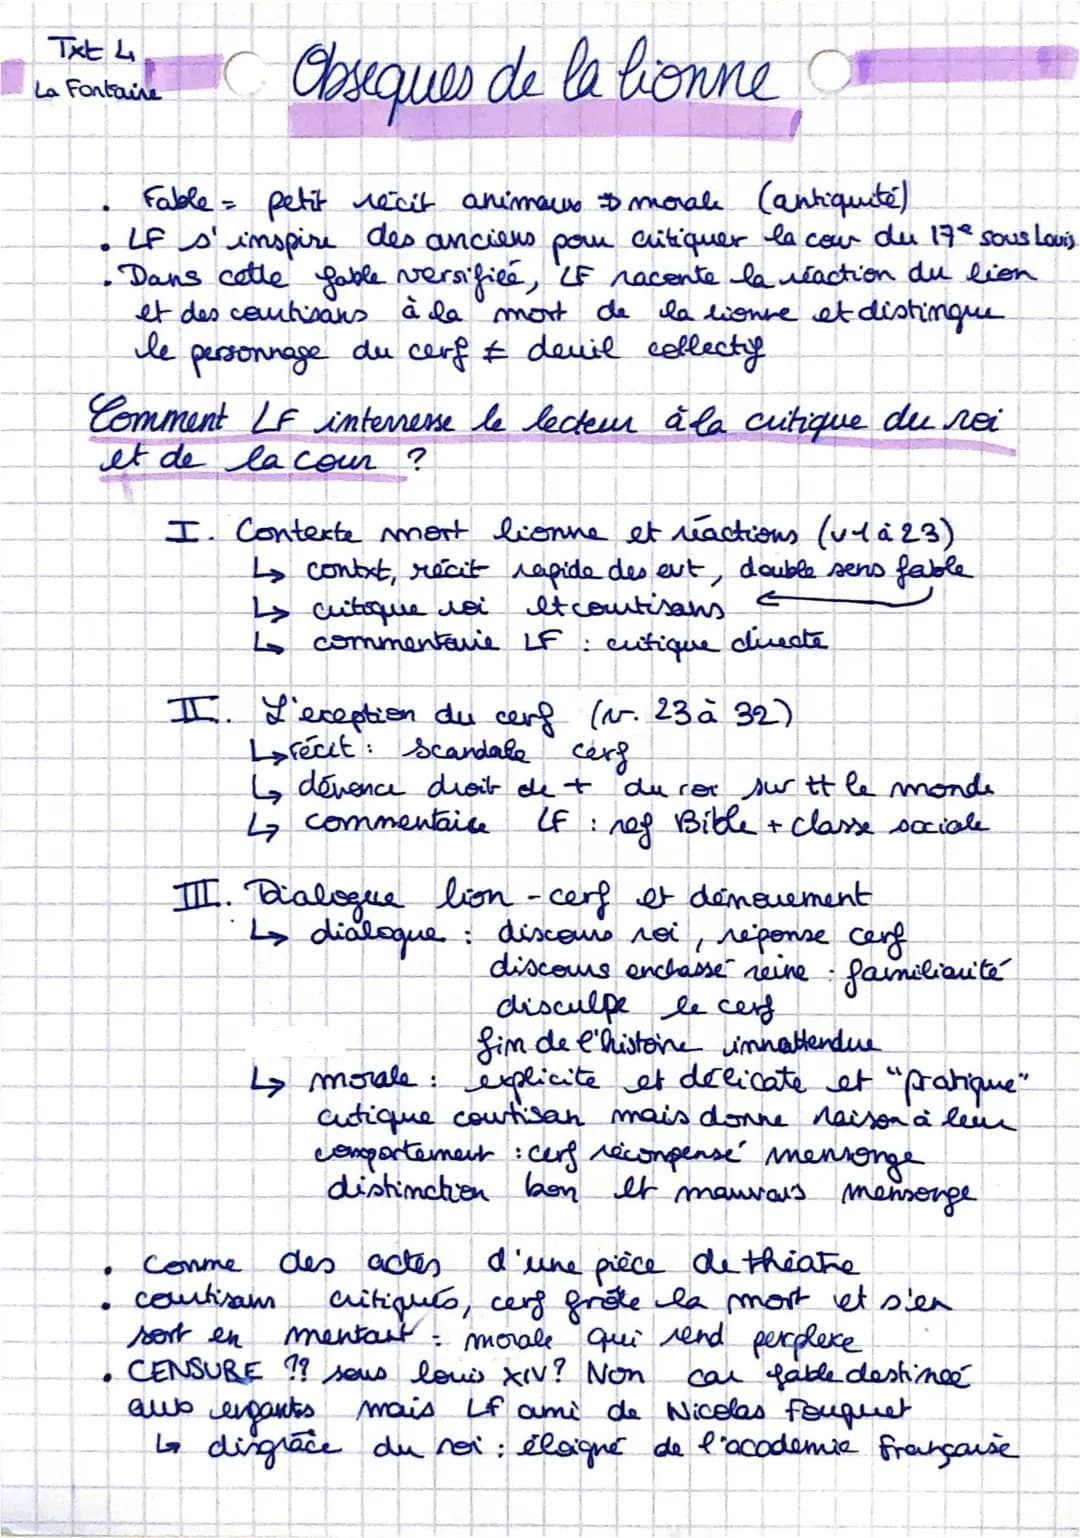 Txt 4
La Fontaine
Obseques de la lionne
. Fable = petit récit animaux => morale (antiquité)
. LF s'inspire des anciens pour critiquer la cour du 17e sous Louis
. Dans cette fable versifiée, LF raconte la réaction du lion
et des courtisans à la mort de la lionne et distingue
le personnage du cerf ≠ deuil collectif
Comment LF interresse le lecteur à la critique du roi
et de la cour ?
I. Contexte mort lionne et réactions (v1 à 23)
↳ contxt, récit rapide des evt, double sens fable
↳ critique roi et courtisans ←
↳ commentaire LF : critique directe
II. L'exeption du cerf (v. 23 à 32)
↳ récit : scandale cerf
↳ dénonce droit de + du roi sur tt le monde
↳ commentaire LF : ref Bible + classe sociale
III. Dialogue lion - cerf et dénouement
↳ dialogue : discours roi, réponse cerf
discours enchassé reine : familiarité
disculpe le cerf
fin de l'histoire innattendue
↳ morale : explicite et délicate et "pratique"
critique courtisan mais donne raison à leur
comportement : cerf récompensé mensonge
distinction bon et mauvais mensonge
. Comme des actes d'une pièce de théatre
. courtisans critiqués, cerf frôle la mort et s'en
sort en mentant : morale qui rend perplexe
. CENSURE ?? sous louis XIV ? Non car fable destineé
aux enfants mais LF ami de Nicolas Fouquet
↳ disgrâce du roi : éloigné de l'academie française